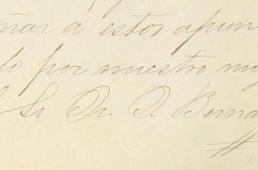 ñar á estos apun
do por nuestro muy
l Sr. Dr. D. Berna